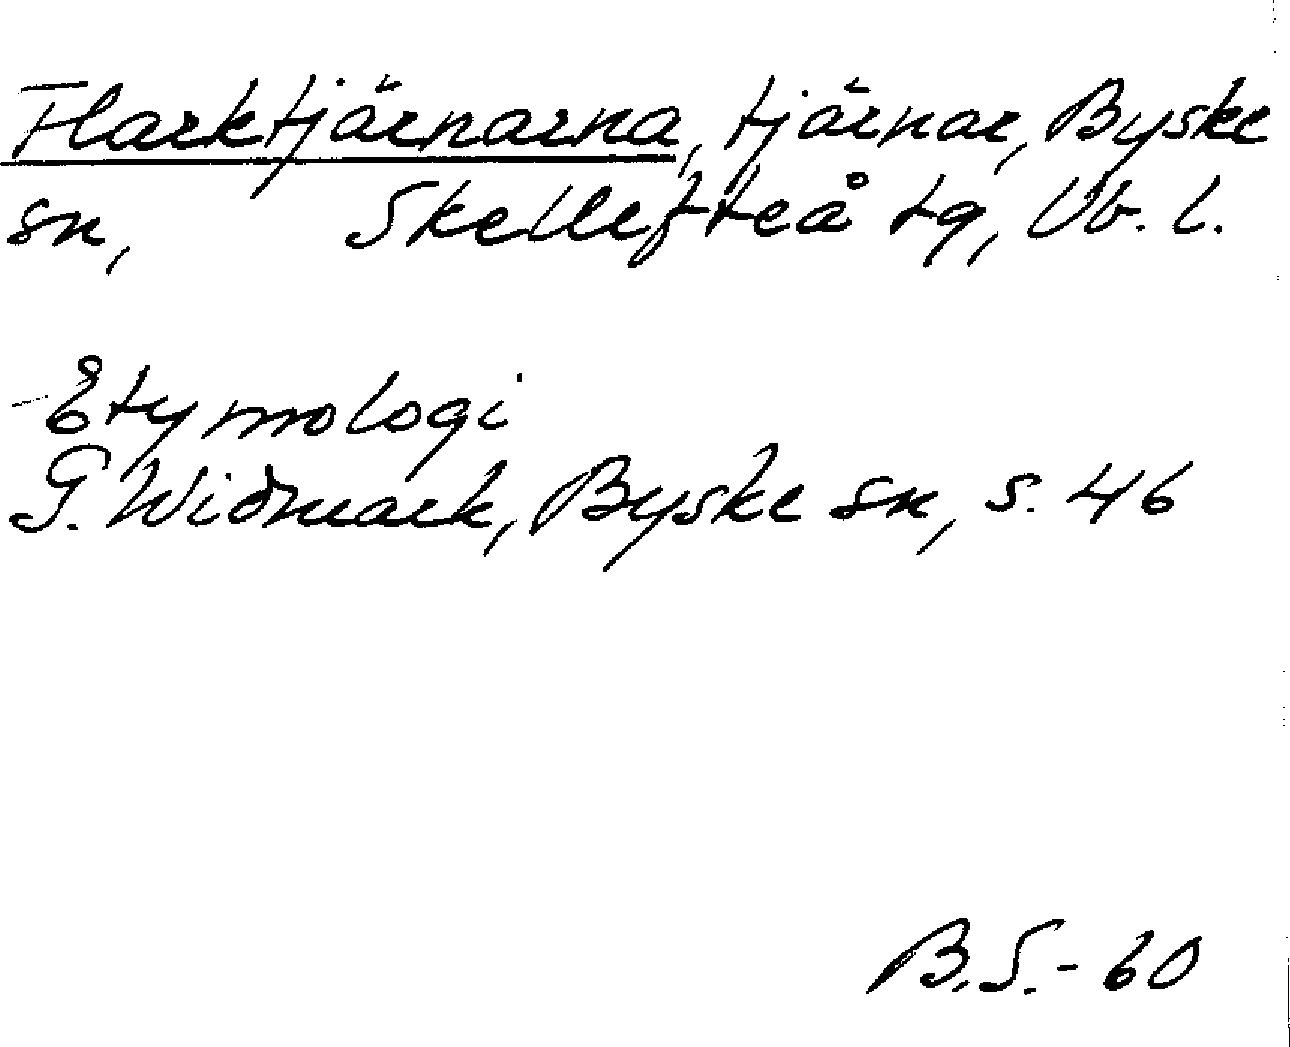 Flarktjärnarna, tjärnar, Byske
sn, Skellefteå tg, Vb. l.
Etymologi
G. Widmark, Byske sn, s. 46
B.S.-60